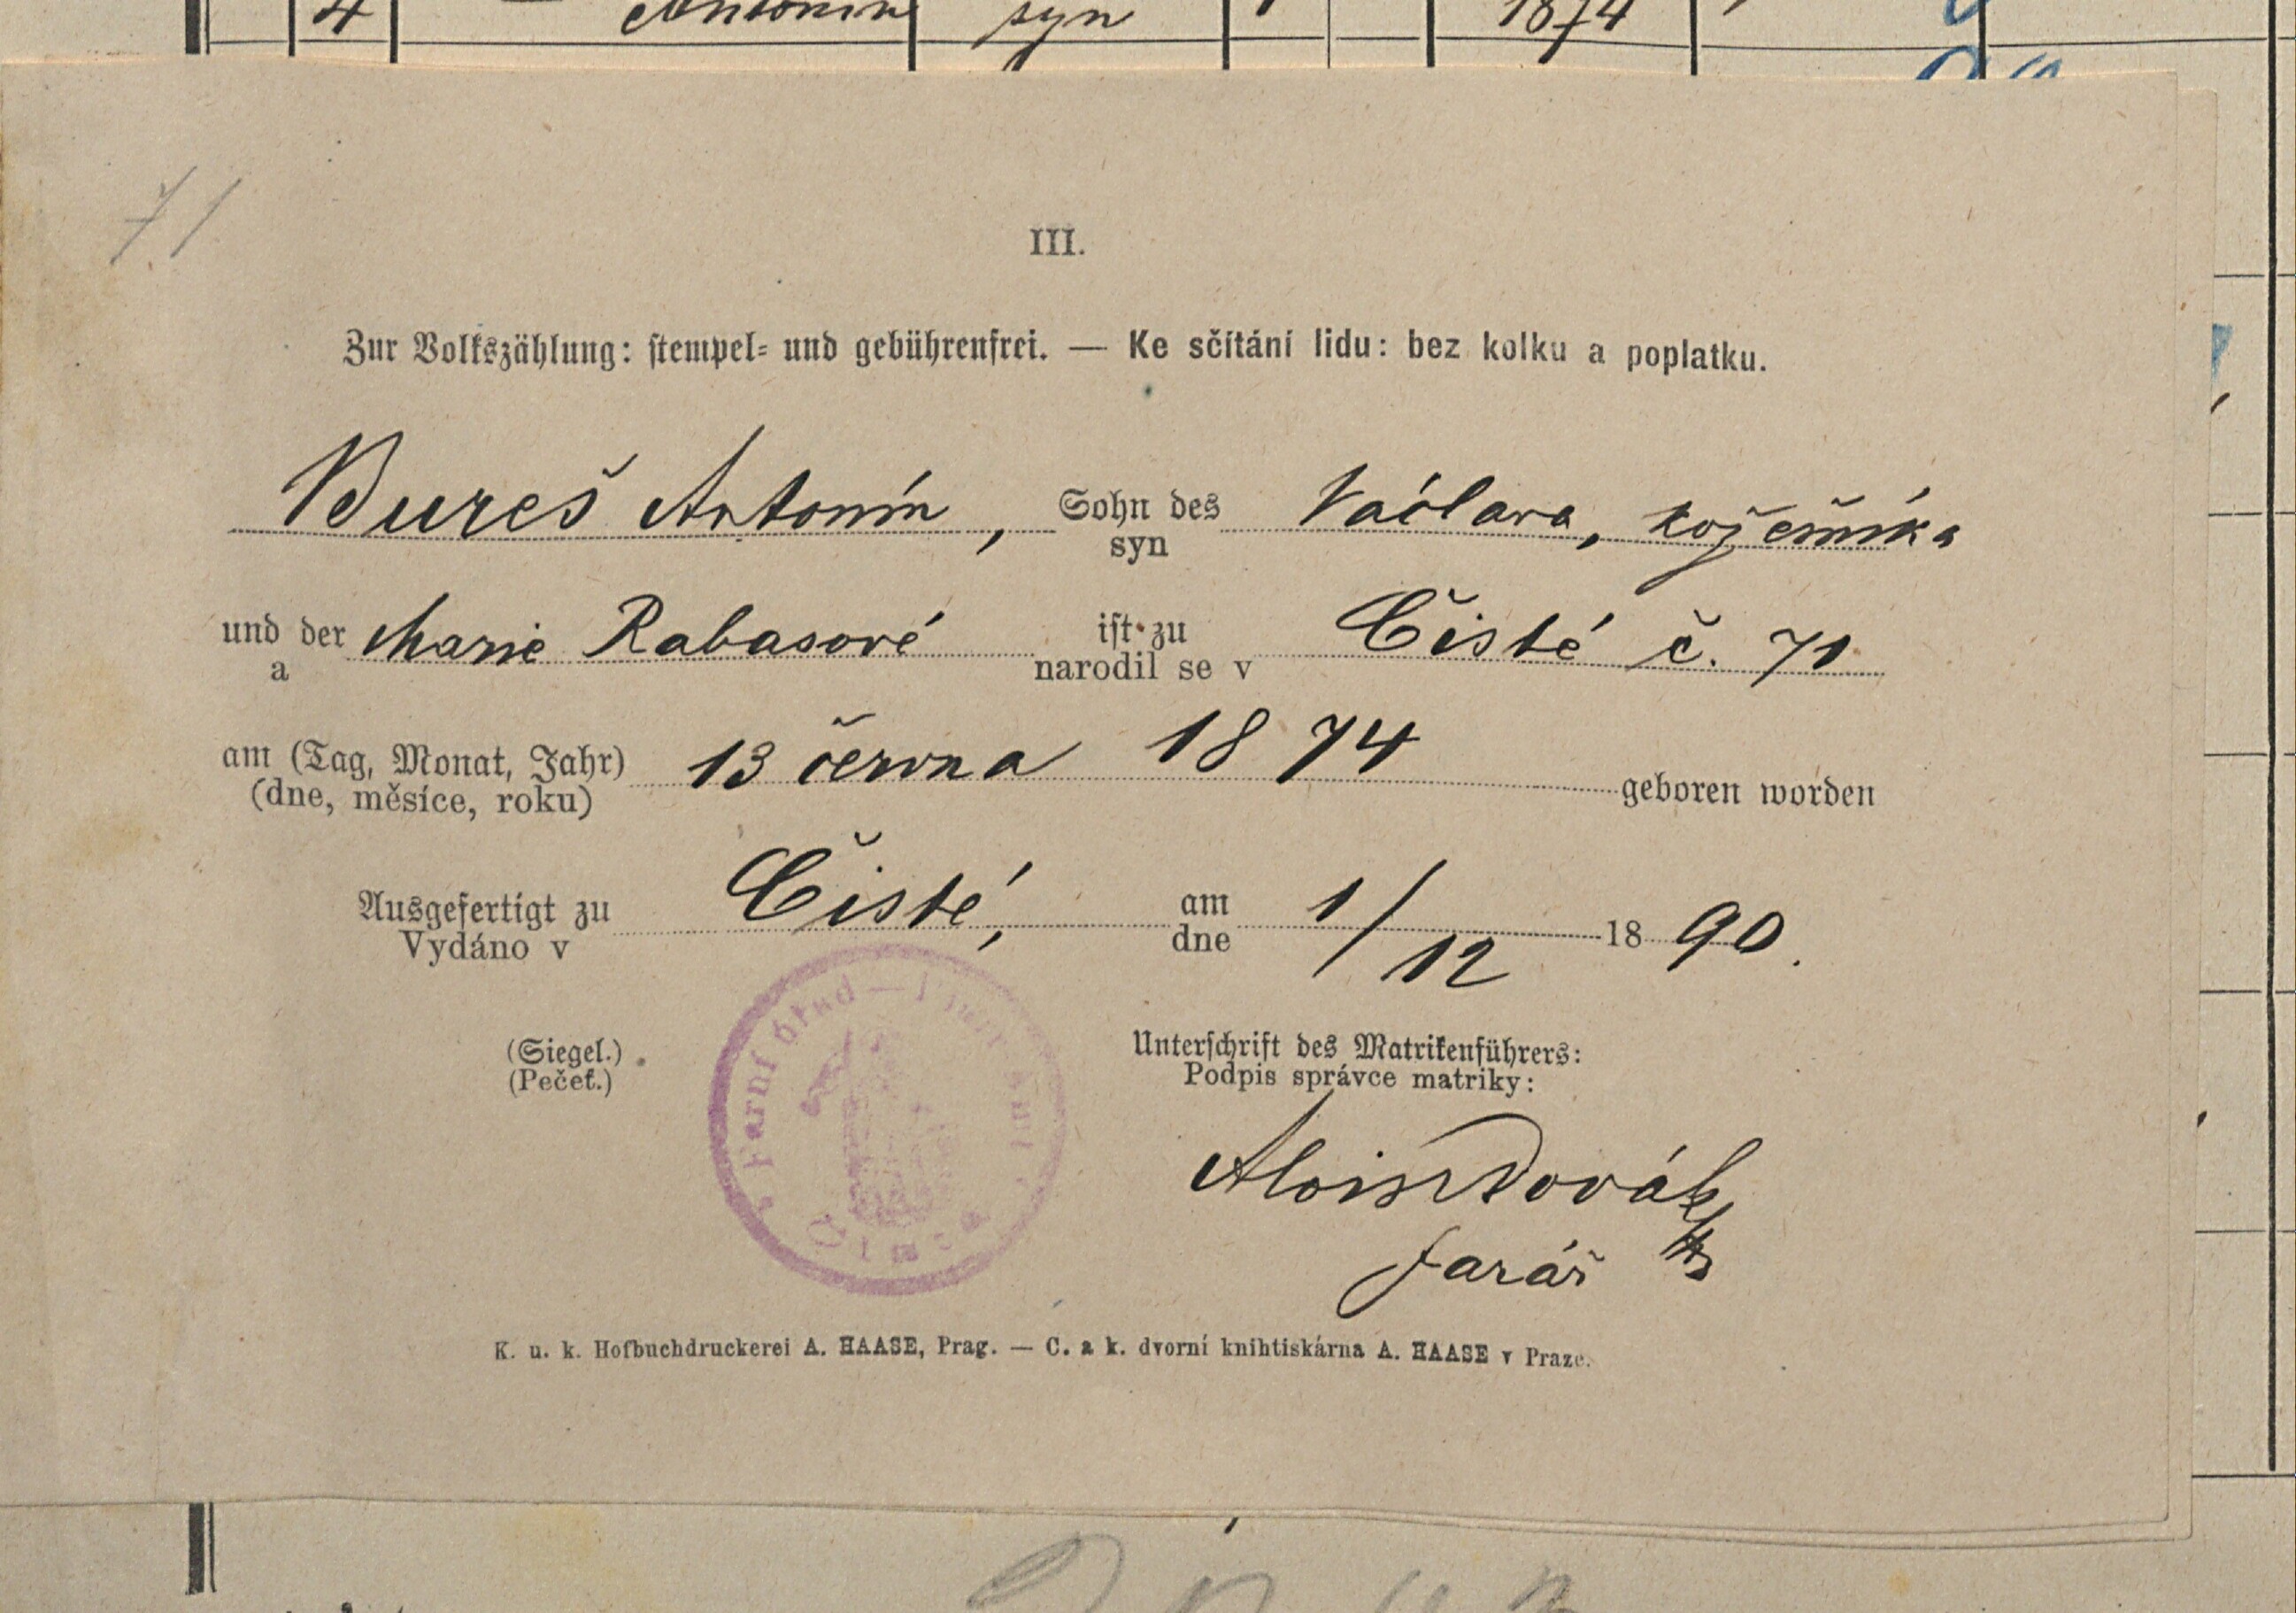 4 Antonín syn 1874
71
III.
Zur Volkszählung: stempel- und gebührenfrei. — Ke sčítání lidu: bez kolku a poplatku.
Bureš Antonín, Sohn des Václava, kožešníka
syn
und der Marie Rabasové ist zu Čisté č. 71
a narodil se v
am (Tag, Monat, Jahr) 13 června 1874 geboren worden
(dne, měsíce, roku)
Ausgefertigt zu Čisté, am 1/12 1890.
Vydáno v dne
(Siegel.) Unterschrift des Matrikenführers:
(Pečeť.) Podpis správce matriky:
Farní úřad —
Alois Novák
farář
K. u. k. Hofbuchdruckerei A. HAASE, Prag. — C. a k. dvorní knihtiskárna A. HAASE v Praze.